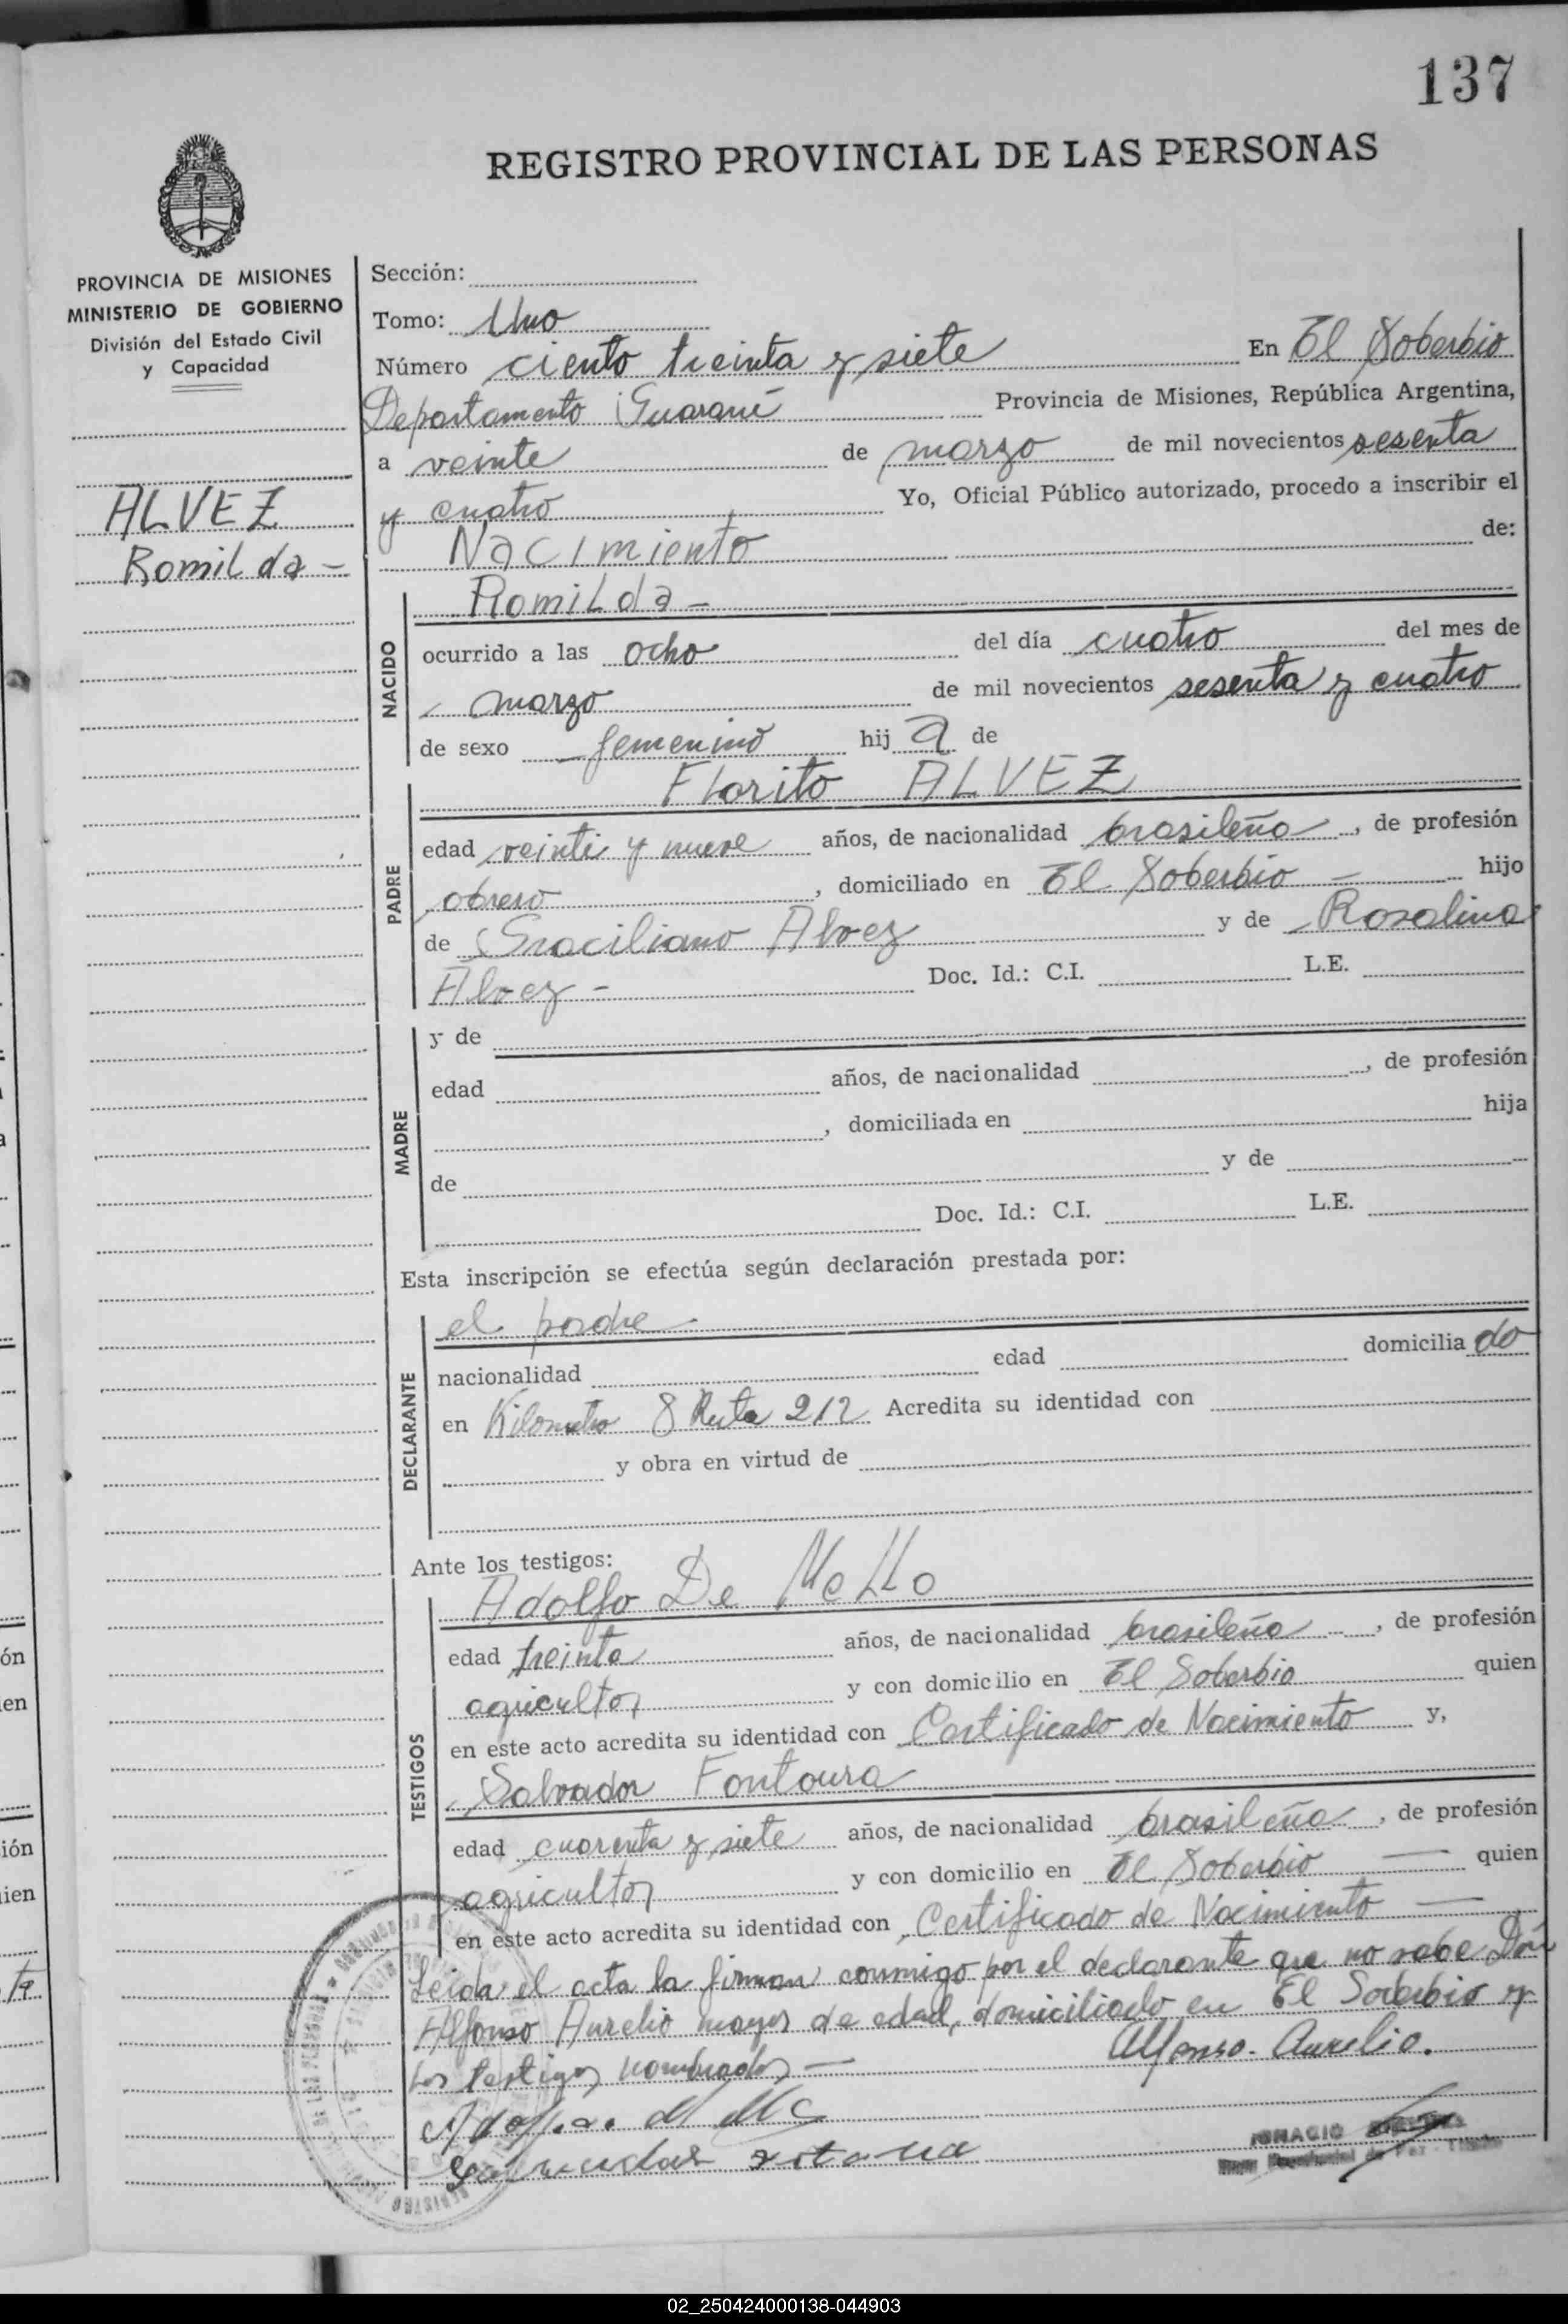 137
REGISTRO PROVINCIAL DE LAS PERSONAS
PROVINCIA DE MISIONES
MINISTERIO DE GOBIERNO
División del Estado Civil
y Capacidad
ALVEZ
Romilda -
Sección:
Tomo: Uno
Número ciento treinta y siete En El Soberbio
Departamento Guaraní Provincia de Misiones, República Argentina,
a veinte de marzo de mil novecientos sesenta
y cuatro Yo, Oficial Público autorizado, procedo a inscribir el
Nacimiento de:
NACIDO
Romilda -
ocurrido a las ocho del día cuatro del mes de
marzo de mil novecientos sesenta y cuatro
de sexo femenino hija de
PADRE
Florito ALVEZ
edad veinti y nueve años, de nacionalidad brasileña, de profesión
obrero, domiciliado en El Soberbio - hijo
de Graciliano Alvez y de Rosalina
Alvez - Doc. Id.: C.I. L.E.
MADRE
y de
edad años, de nacionalidad , de profesión
, domiciliada en hija
de y de
Doc. Id.: C.I. L.E.
Esta inscripción se efectúa según declaración prestada por:
DECLARANTE
el padre
nacionalidad edad domiciliado
en Kilometro 8 Ruta 212 Acredita su identidad con
y obra en virtud de
Ante los testigos:
TESTIGOS
Adolfo De Mello
edad treinta años, de nacionalidad brasileña, de profesión
agricultor y con domicilio en El Soberbio quien
en este acto acredita su identidad con Certificado de Nacimiento y,
Salvador Fontoura
edad cuarenta y siete años, de nacionalidad brasileña, de profesión
agricultor y con domicilio en El Soberbio — quien
en este acto acredita su identidad con Certificado de Nacimiento —
Leida el acta la firman conmigo por el declarante que no sabe Don
Alfonso Aurelio mayor de edad, domiciliado en El Soberbio y
los testigos nombrados —
Alfonso. Aurelio.
IGNACIO
02_250424000138-044903